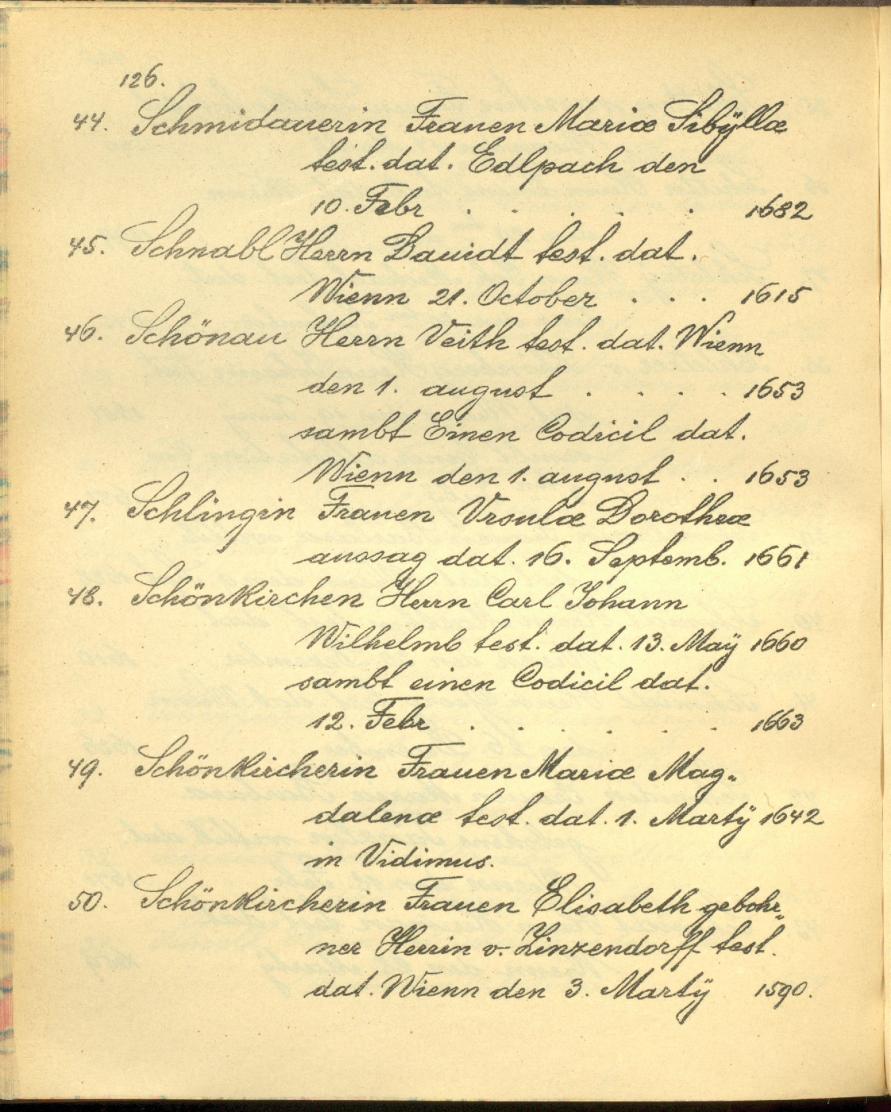 126.
44. Schmidauerin Frauen Mariæ Sibÿllæ
test. dat. Edlpach den
10. Febr . . . . . . 1682
45. Schnabl Herrn Dauidt test. dat.
Wienn 21. October . . . 1615
46. Schönau Herrn Veith test. dat. Wienn
den 1. august . . . . 1653
sambt Einen Codicil dat.
Wienn den 1. august . . 1653
47. Schlingin Frauen Vrsulæ Dorotheæ
aussag dat. 16. Septemb. 1661
48. Schönkirchen Herrn Carl Johann
Wilhelmb test. dat. 13. Maÿ 1660
sambt einen Codicil dat.
12. Febr . . . . . . 1663
49. Schönkircherin Frauen Mariæ Mag„
dalenæ test. dat. 1. Martÿ 1642
in Vidimus.
50. Schönkircherin Frauen Elisabeth gebohr„
ner Herrin v. Zinzendorff test.
dat. Wienn den 3. Martÿ 1590.